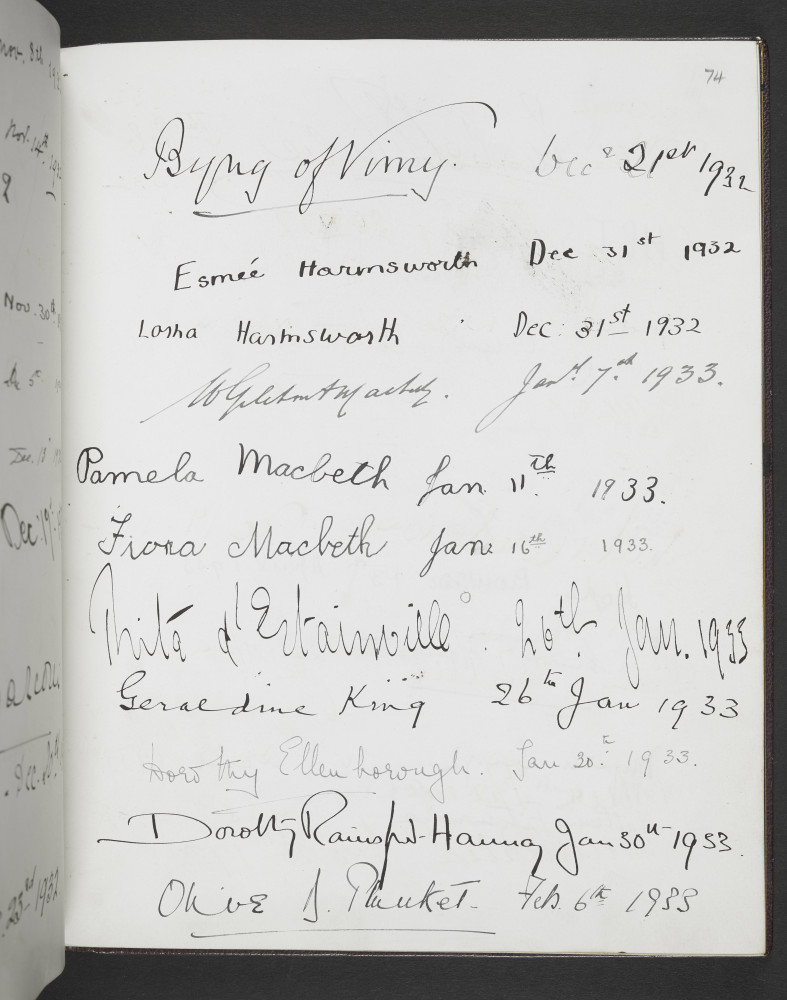 74
Byng of Vimy. Dec 21st 1932
Esmée Harmsworth Dec 31st 1932
Lorna Harmsworth Dec: 31st 1932
Jan 7th 1933.
Pamela Macbeth Jan 11th 1933.
Fiona Macbeth Jan: 16th 1933.
d'Estainville. 26th Jan. 1933
Geraldine King 26th Jan 1933
Dorothy Ellenborough. Jan 30th 1933.
Dorothy Rainsford-Hannay Jan 30th 1933.
Olive S. Plunket. Feb. 6th 1933
Nov. 30th
Dec. 13
Dec. 19
23rd 1932